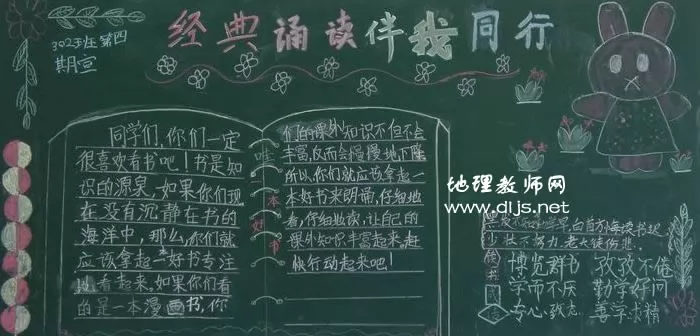 302班第四
期宣
经典诵读伴我同行
同学们,你们一定
很喜欢看书吧!书是知
识的源泉,如果你们现
在没有沉静在书的
海洋中,那么,你们就
应该拿起一好书专注
地看起来,如果你们看
的是一本漫画书,你
们的课外知识不但不会
丰富,反而会慢慢地下降
所以,你们就应该拿起一
本好书来朗诵,仔细地
看,仔细地读,让自己的
课外知识丰富起来,赶
快行动起来吧!
本好书
地理教师网
www.dljs.net
黑发不知勤学早,白首方悔读书迟
少壮不努力,老大徒伤悲
博览群书 孜孜不倦
学而不厌 勤学好问
专心致志 善学求精